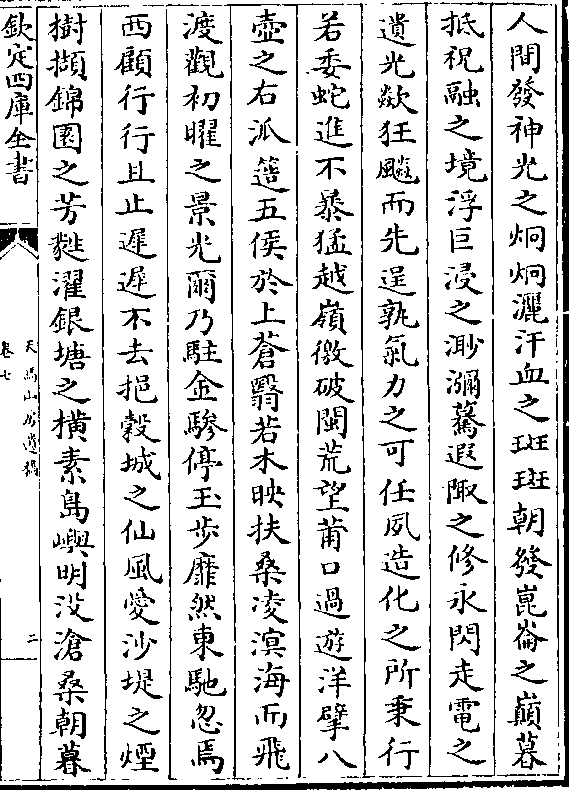 人間發神光之炯炯灑汗血之斑斑朝發崑崙之巔暮
抵祝融之境浮巨浸之渺瀰驀遐陬之修永閃走電之
遺光欻狂飈而先逞孰氣力之可任夙造化之所秉行
若委蛇進不暴猛越嶺徼破閩荒望莆口過遊洋擘八
壺之右派簉五侯於上蒼翳若木映扶桑凌溟海而飛
渡觀初曜之景光爾乃駐金驂停玉步靡然東馳忽焉
西顧行行且止遲遲不去挹榖城之仙風愛沙堤之煙
樹擷錦囿之芳蕤濯銀塘之橫素島嶼明没滄桑朝暮
欽定四庫全書
天馬山房遺稿
卷七
二